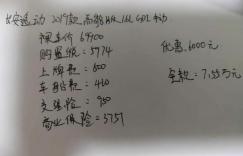 长安逸动 2019款 高能版 1.6L GDI 手动
裸车价 69900
购置税：5774
上牌费：500
车船税：420
交强险：950
商业保险=5757
优惠：6000元
全款：7.55万元